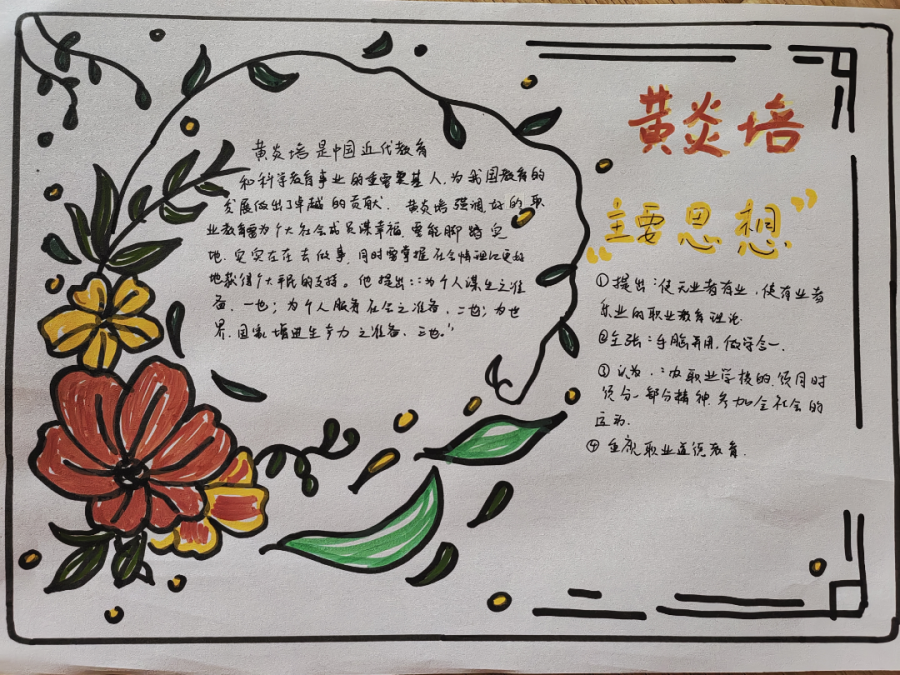 黄炎培是中国近代教育
和科学教育事业的重要奠基人,为我国教育的
发展做出了卓越的贡献. 黄炎培强调,好的职
业教育需为个大社会成员谋幸福,要能脚踏实
地,实实在在去做事,同时需掌握社会情理以更好
地获得个大平民的支持。他提出:"为个人谋生之准
备,一也;为个人服务社会之准备,二也;为世
界、国家增进生产力之准备,三也."
黄炎培
"主要思想"
①提出:使无业者有业,使有业者
乐业的职业教育理论.
②主张:手脑并用,做学合一.
③认为:办职业学校的,须同时
须分一部分精神,参加全社会的
运动.
④重视职业道德教育.